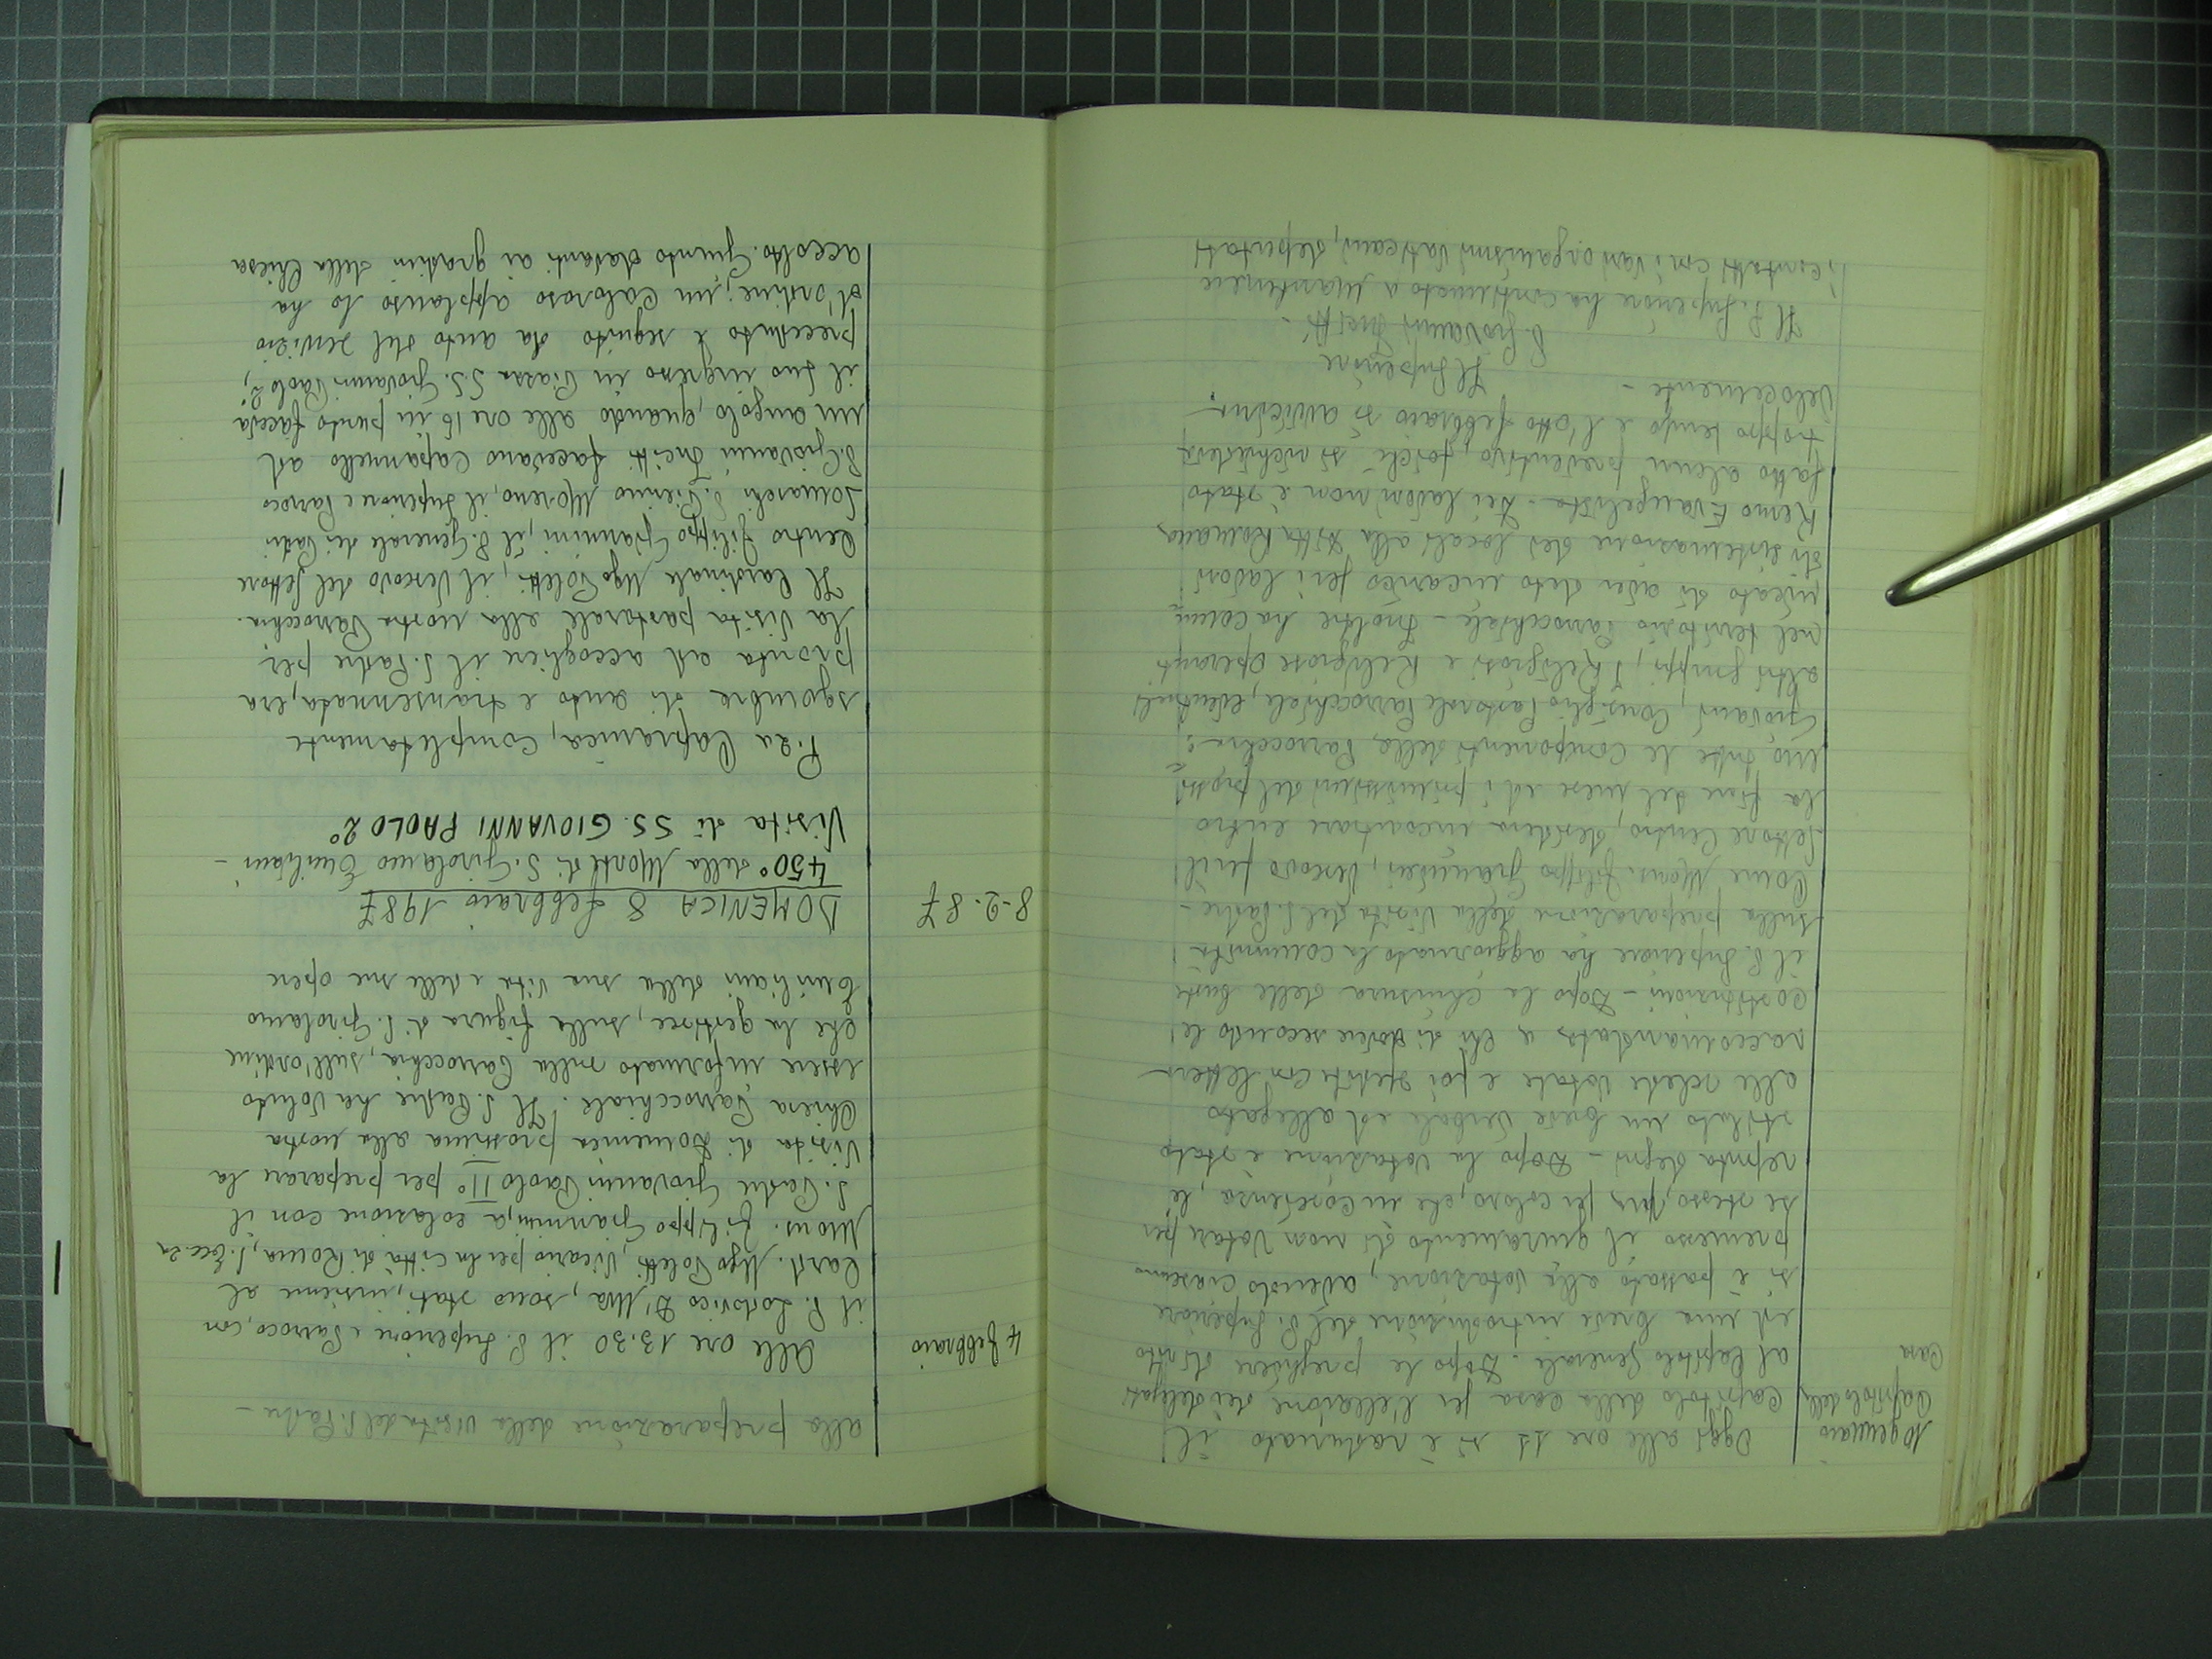 10 gennaio
Capitolo della
Casa
Oggi alle ore 11 si è radunato il
Capitolo della Casa per l'elezione dei delegati
al Capitolo Generale. Dopo le preghiere di rito
ed una breve introduzione del P. Superiore
si è passato alla votazione, avendo ciascuno
premesso il giuramento di non votare per
se stesso, ma per coloro, che in coscienza, li
reputa degni - Dopo la votazione è stato
stilato un breve verbale ed allegato
alle schede votate e poi spedite con lettera
raccomandata a chi di dovere secondo le
costituzioni - Dopo la chiusura delle buste
il P. Superiore ha aggiornato la comunità
sulla preparazione della visita del S. Padre -
Come Mons. Filippo Giannini, Vescovo per il
settore Centro, desidera incontrare entro
la fine del mese ed i primissimi del prossi
mo, tutte le componenti della Parrocchia:
Giovani, Consiglio Pastorale Parrocchiale,
altri gruppi, i Religiosi e Religiose operanti
nel territorio Parrocchiale - Inoltre ha comu
nicato di aver dato incarico per i lavori
di sistemazione dei locali alla Ditta Romana
Remo Evangelista - Dei lavori non è stato
fatto alcun preventivo, poiché si richiedeva
troppo tempo e l'otto febbraio si avvicina
velocemente -
Il Superiore
P. Giovanni
Il P. Superiore ha continuato a mantenere
i contatti con i vari organismi vaticani, deputati
alla preparazione della visita del S. Padre -
4 febbraio
Alle ore 13.30 il P. Superiore e Parroco, con
il P. Lodovico D'Uva, sono stati, insieme al
Card. Ugo Poletti, Vicario per la Città di Roma, S. Ecc.za
Mons. Filippo Giannini, a colazione con il
S. Padre Giovanni Paolo II° per preparare la
visita di Domenica prossima alla nostra
Chiesa Parrocchiale. Il S. Padre ha voluto
essere informato sulla Parrocchia, sull'ordine
che la gestisce, sulla figura di S. Girolamo
Emiliani della sua vita e delle sue opere
8-2-87
DOMENICA 8 febbraio 1987
450° della Morte di S. Girolamo Emiliani -
Visita di SS. GIOVANNI PAOLO 2°
P.za Capranica, completamente
sgombra di auto e transennata, era
pronta ad accogliere il S. Padre per
la visita pastorale alla nostra Parrocchia.
Il Cardinale Ugo Poletti, il Vescovo del settore
Centro Filippo Giannini, il P. Generale dei Padri
Somaschi P. Pierino Moreno, il Superiore e Parroco
P. Giovanni facevano capannello ad
un angolo, quando alle ore 16 in punto faceva
il suo ingresso in Piazza S.S. Giovanni Paolo 2°,
preceduto e seguito da auto del servizio
d'ordine; un caloroso applauso lo ha
accolto. Giunto davanti ai gradini della Chiesa